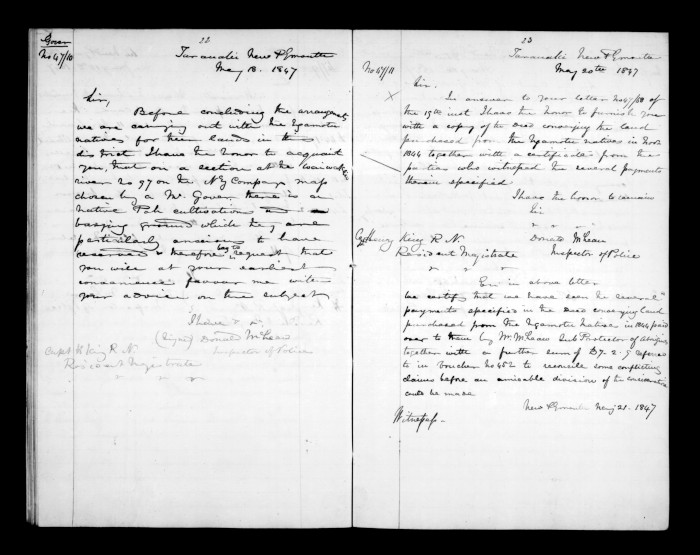 22
Gover
No 47/10
Taranaki New Plymouth
May 18. 1847
Sir,
Before concluding the arrangements
we are carrying out with the Ngamotu
natives for their lands in the
district I have the honor to acquaint
you, that on a section at the Waiwakaiho
river No 97 on the NZ Company's map
chosen by a Mr. Gover there is an
native Pah cultivation and a
burying ground which they are
particularly anxious to have
reserved & therefore beg to request that
you will at your earliest
convenience favour me with
your advice on the subject
I have &c
(signed) Donald McLean
Inspector of Police
Capt H King R. N.
Resident Magistrate
23
Taranaki New Plymouth
May 20th 1847
No 47/11
Sir.
In answer to your letter No 47/50 of
the 15th inst I have the honor to furnish you
with a copy of the deed conveying the land
purchased from the Ngamotu natives in Nov
1844 together with a certificate from the
parties who witnessed the several payments
therein specified
I have the honor to remain
Sir
Donald McLean
Inspector of Police
Cap Henry King R. N.
Resident Magistrate
En in above letter
We certify that we have seen the several
payments specified in the deed conveying land
purchased from the Ngamotu Natives in 1844 paid
over to them by Mr. McLean Sub Protector of Aborigines
together with a further sum of £7. 2. 9 referred
to in voucher No 452 to reconcile some conflicting
claims before an amicable division of the consideration
could be made
New Plymouth May 21. 1847
Witnesses